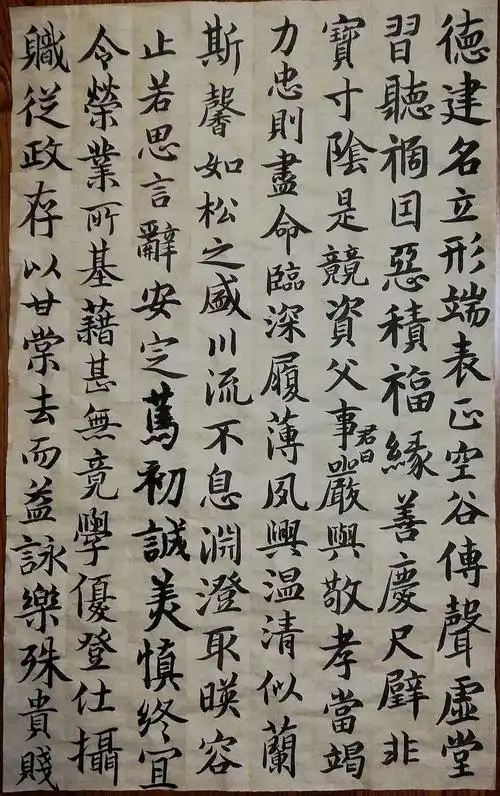 德建名立形端表正空谷傳聲虛堂
習聽禍囙惡積福緣善慶尺璧非
寶寸陰是競資父事君曰嚴與敬孝當竭
力忠則盡命臨深履薄夙興温清似蘭
斯馨如松之盛川流不息淵澄取暎容
止若思言辭安定篤初誠美慎終宜
令榮業所基藉甚無竟學優登仕攝
軄從政存以甘棠去而益詠樂殊貴賤